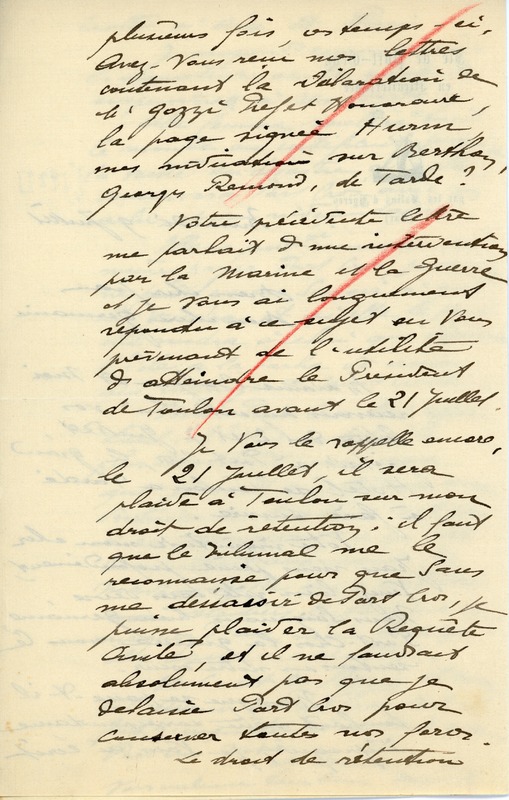 plusieurs fois, ces temps-ci,
Avez-vous reçu nos lettres
contenant la Déclaration de
Mr Gozzi Prefet Honoraire,
la page signée Hurm
mes indications sur Berthon,
Georges Remond, de Tarde?
Votre précédente lettre
me parlait d'une intervention
par la Marine et la Guerre
et je vous ai longuement
répondu à ce sujet en vous
prévenant de l'utilité
d'atteindre le Président
de Toulon avant le 21 Juillet.
Je Vous le rappelle encore,
le 21 Juillet, il sera
plaidé à Toulon sur mon
droit de rétention: il faut
que le Tribunal me le
reconnaisse pour que sans
me dessaisir de Port Cros, je
puisse plaider la Requête
Civile, et il ne faudrait
absolument pas que je
délaisse Port Cros pour
conserver toutes nos forces.
Le droit de rétention